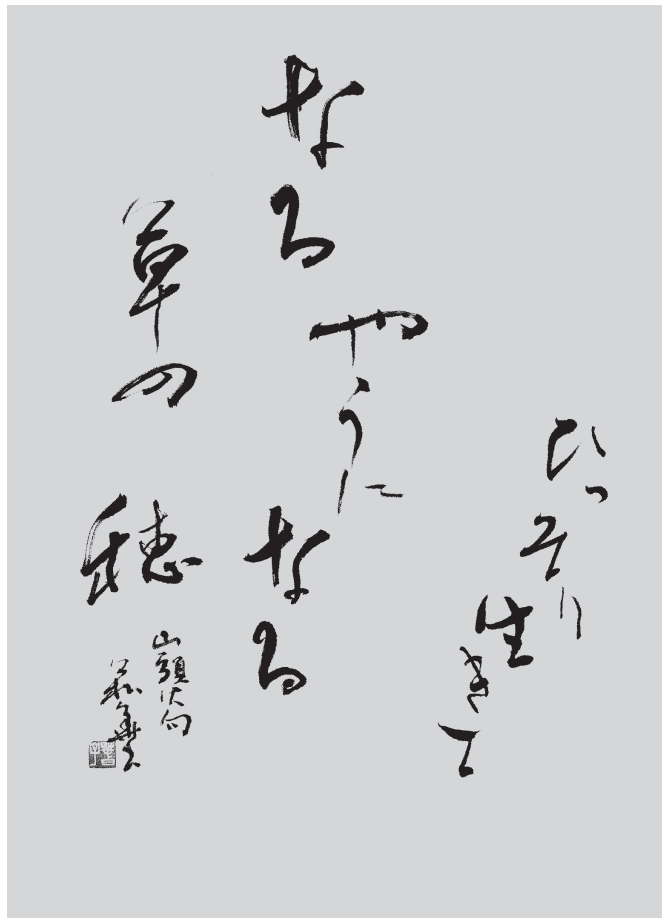 ひっそり生きて
なるやうになる
草の穂
山頭火句